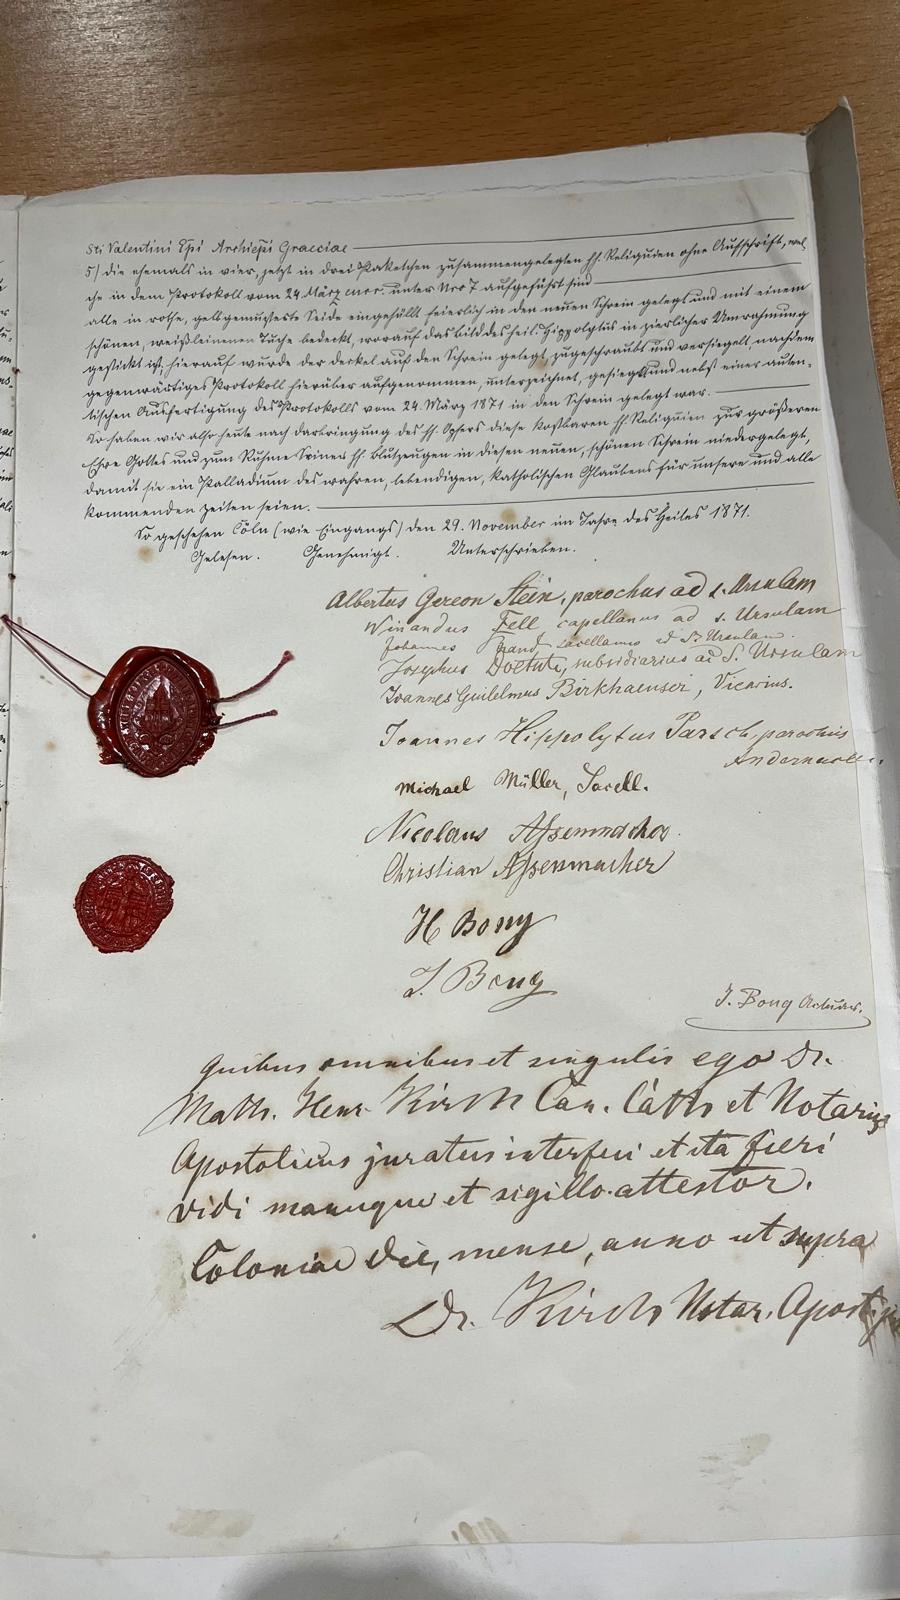 Sti Valentini Epi Archiepi Graeciae
5) die ehemals in vier, jetzt in drei Paketchen zusammengelegten hh. Reliquien ohne Aufschrift, wel-
che in dem Protokoll vom 24. März unter Nro 7 aufgeführt sind
alle in rothe, gelbgemusterte Seide eingehüllt feierlich in den neuen Schrein gelegt und mit einem
schönen, weißleinenen Tuche bedeckt, worauf das Bild des heil. Hippolytus in zierlicher Umrahmung
gestickt ist; hierauf wurde der Deckel auf den Schrein gelegt, zugeschraubt und versiegelt, nachdem
gegenwärtiges Protokoll hierüber aufgenommen, unterzeichnet, gesiegelt und nebst einer auten-
tischen Ausfertigung des Protokolls vom 24. März 1871 in den Schrein gelegt war.
So haben wir also heute nach Darbringung des hh. Opfers diese kostbaren hh. Reliquien zur größeren
Ehre Gottes und zum Ruhme Seiner hh. Blutzeugen in diesen neuen, schönen Schrein niedergelegt,
damit sie ein Palladium des wahren, lebendigen, katholischen Glaubens für unsere und alle
kommenden Zeiten seien.
So geschehen Cöln (wie Eingangs) den 29. November im Jahre des Heiles 1871.
Gelesen. Genehmigt. Unterschrieben.
Albertus Gereon Stein, parochus ad s. Ursulam
Winandus Fell capellanus ad s. Ursulam
Johannes Brand, sacellanus ad St. Ursulam.
Josephus subsidiarius ad S. Ursulam
Joannes Guilelmus Birkhaeuser, Vicarius.
Joannes Hippolytus Parsch, parochus
Andernach.
Michael Müller, Sacell.
Nicolaus Assenmacher
Christian Assenmacher
H Bong
J. Bong
J. Bong Actuar.
Quibus omnibus et singulis ego Dr.
Math. Henr. Kirch Can. Cath et Notarius
Apostolicus juratus interfui et ita fieri
vidi manuque et sigillo attestor.
Coloniae die, mense, anno ut supra
Dr. Kirch Notar. Apost.